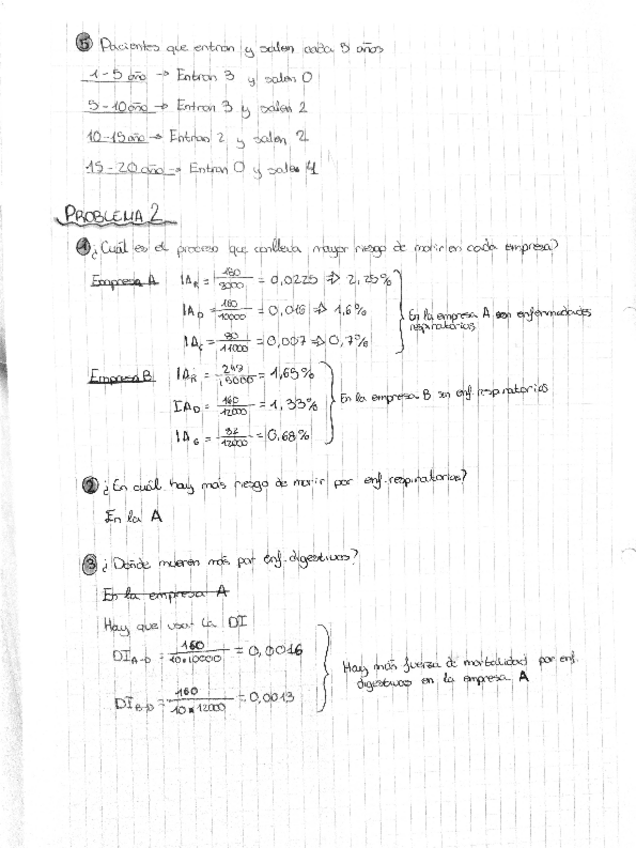 ⑤ Pacientes que entran y salen cada 5 años
1-5 año → Entran 3 y salen 0
5-10 año → Entran 3 y salen 2
10-15 año → Entran 2 y salen 2
15-20 año → Entran 0 y salen 4
PROBLEMA 2
① ¿Cuál es el proceso que conlleva mayor riesgo de morir en cada empresa?
Empresa A IA_R = 180/8000 = 0,0225 ⇒ 2,25%
IA_D = 160/10000 = 0,016 ⇒ 1,6%
En la empresa A son enfermedades
respiratorias
IA_C = 80/11000 = 0,007 ⇒ 0,7%
Empresa B IA_R = 247/15000 = 1,65%
En la empresa B son enf. respiratorias
IA_D = 160/12000 = 1,33%
= 0,68%
② ¿En cuál hay más riesgo de morir por enf. respiratorias?
En la A
③ ¿Dónde mueren más por enf. digestivas?
En la empresa A
Hay que usar la DI
DI_A-D = 160/10·10000 = 0,0016
Hay más fuerza de mortalidad por enf.
digestivas en la empresa A
DI_B-D = 160/10*12000 = 0,0013